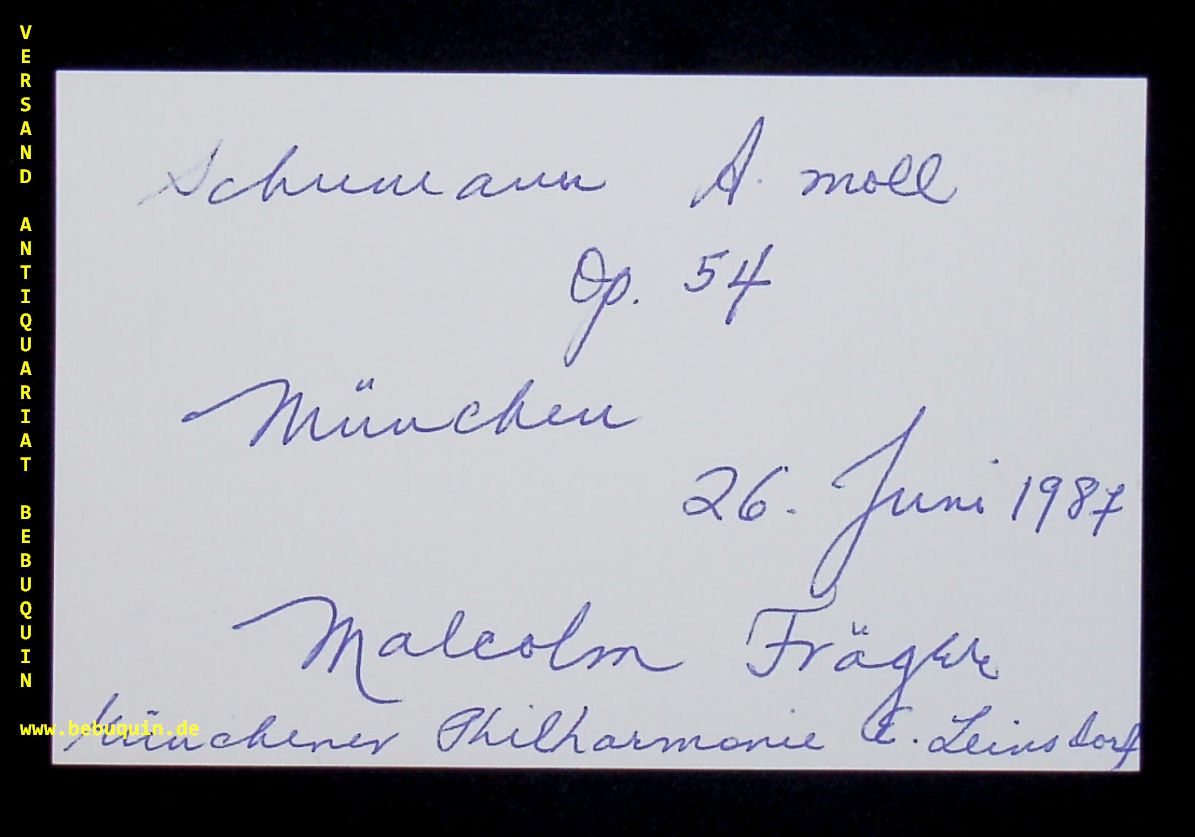 Schumann A. moll
Op. 54
München
26. Juni 1987
Malcolm Fräger
Münchener Philharmonie E. Leinsdorf
VERSAND ANTIQUARIAT BEBUQUIN
www.bebuquin.de